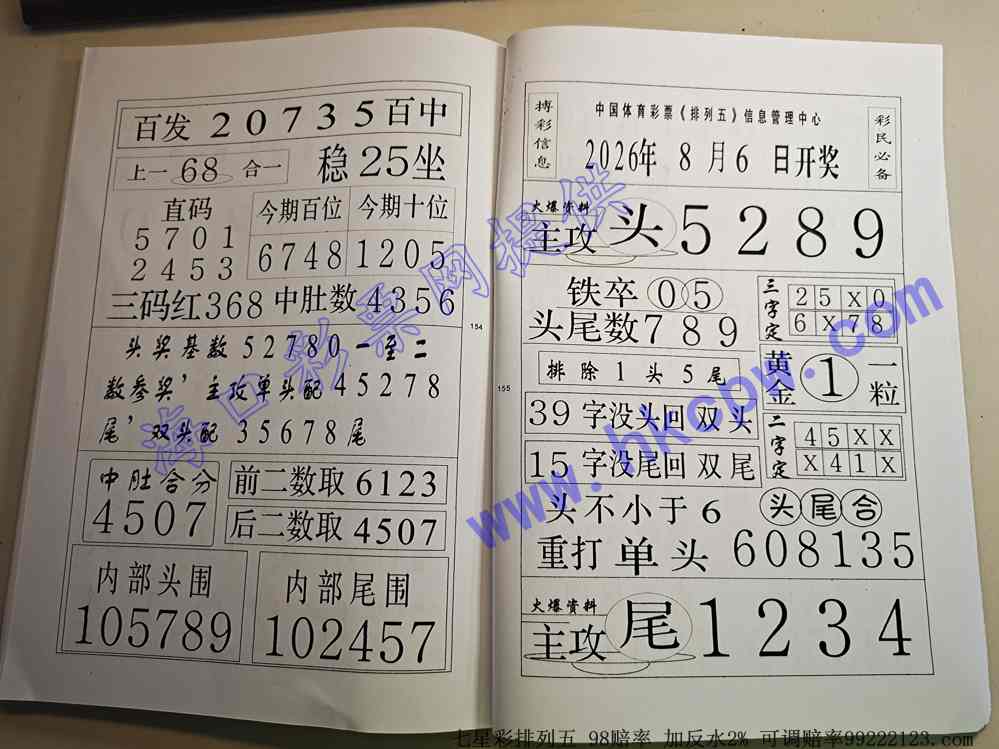 百发20735百中
上一68合一
稳25坐
直码
5701
2453
今期百位
6748
今期十位
1205
三码红368
中肚数4356
头奖基数52780一至二
数参奖’主攻单头配45278
尾’双头配35678尾
中肚合分
4507
前二数取6123
后二数取4507
内部头围
105789
内部尾围
102457
154
155
搏彩信息
中国体育彩票《排列五》信息管理中心
2026年8月6日开奖
彩民必备
火爆资料
主攻头5289
铁卒05
头尾数789
三字定
25X0
6X78
排除1头5尾
黄金①一粒
39字没头回双头
15字没尾回双尾
二字定
45XX
X41X
头不小于6
头尾合
重打单头608135
火爆资料
主攻尾1234
海口彩票网提供
www.hkcpw.com
七星彩排列五 98赔率 加反水2% 可调赔率99222123.com